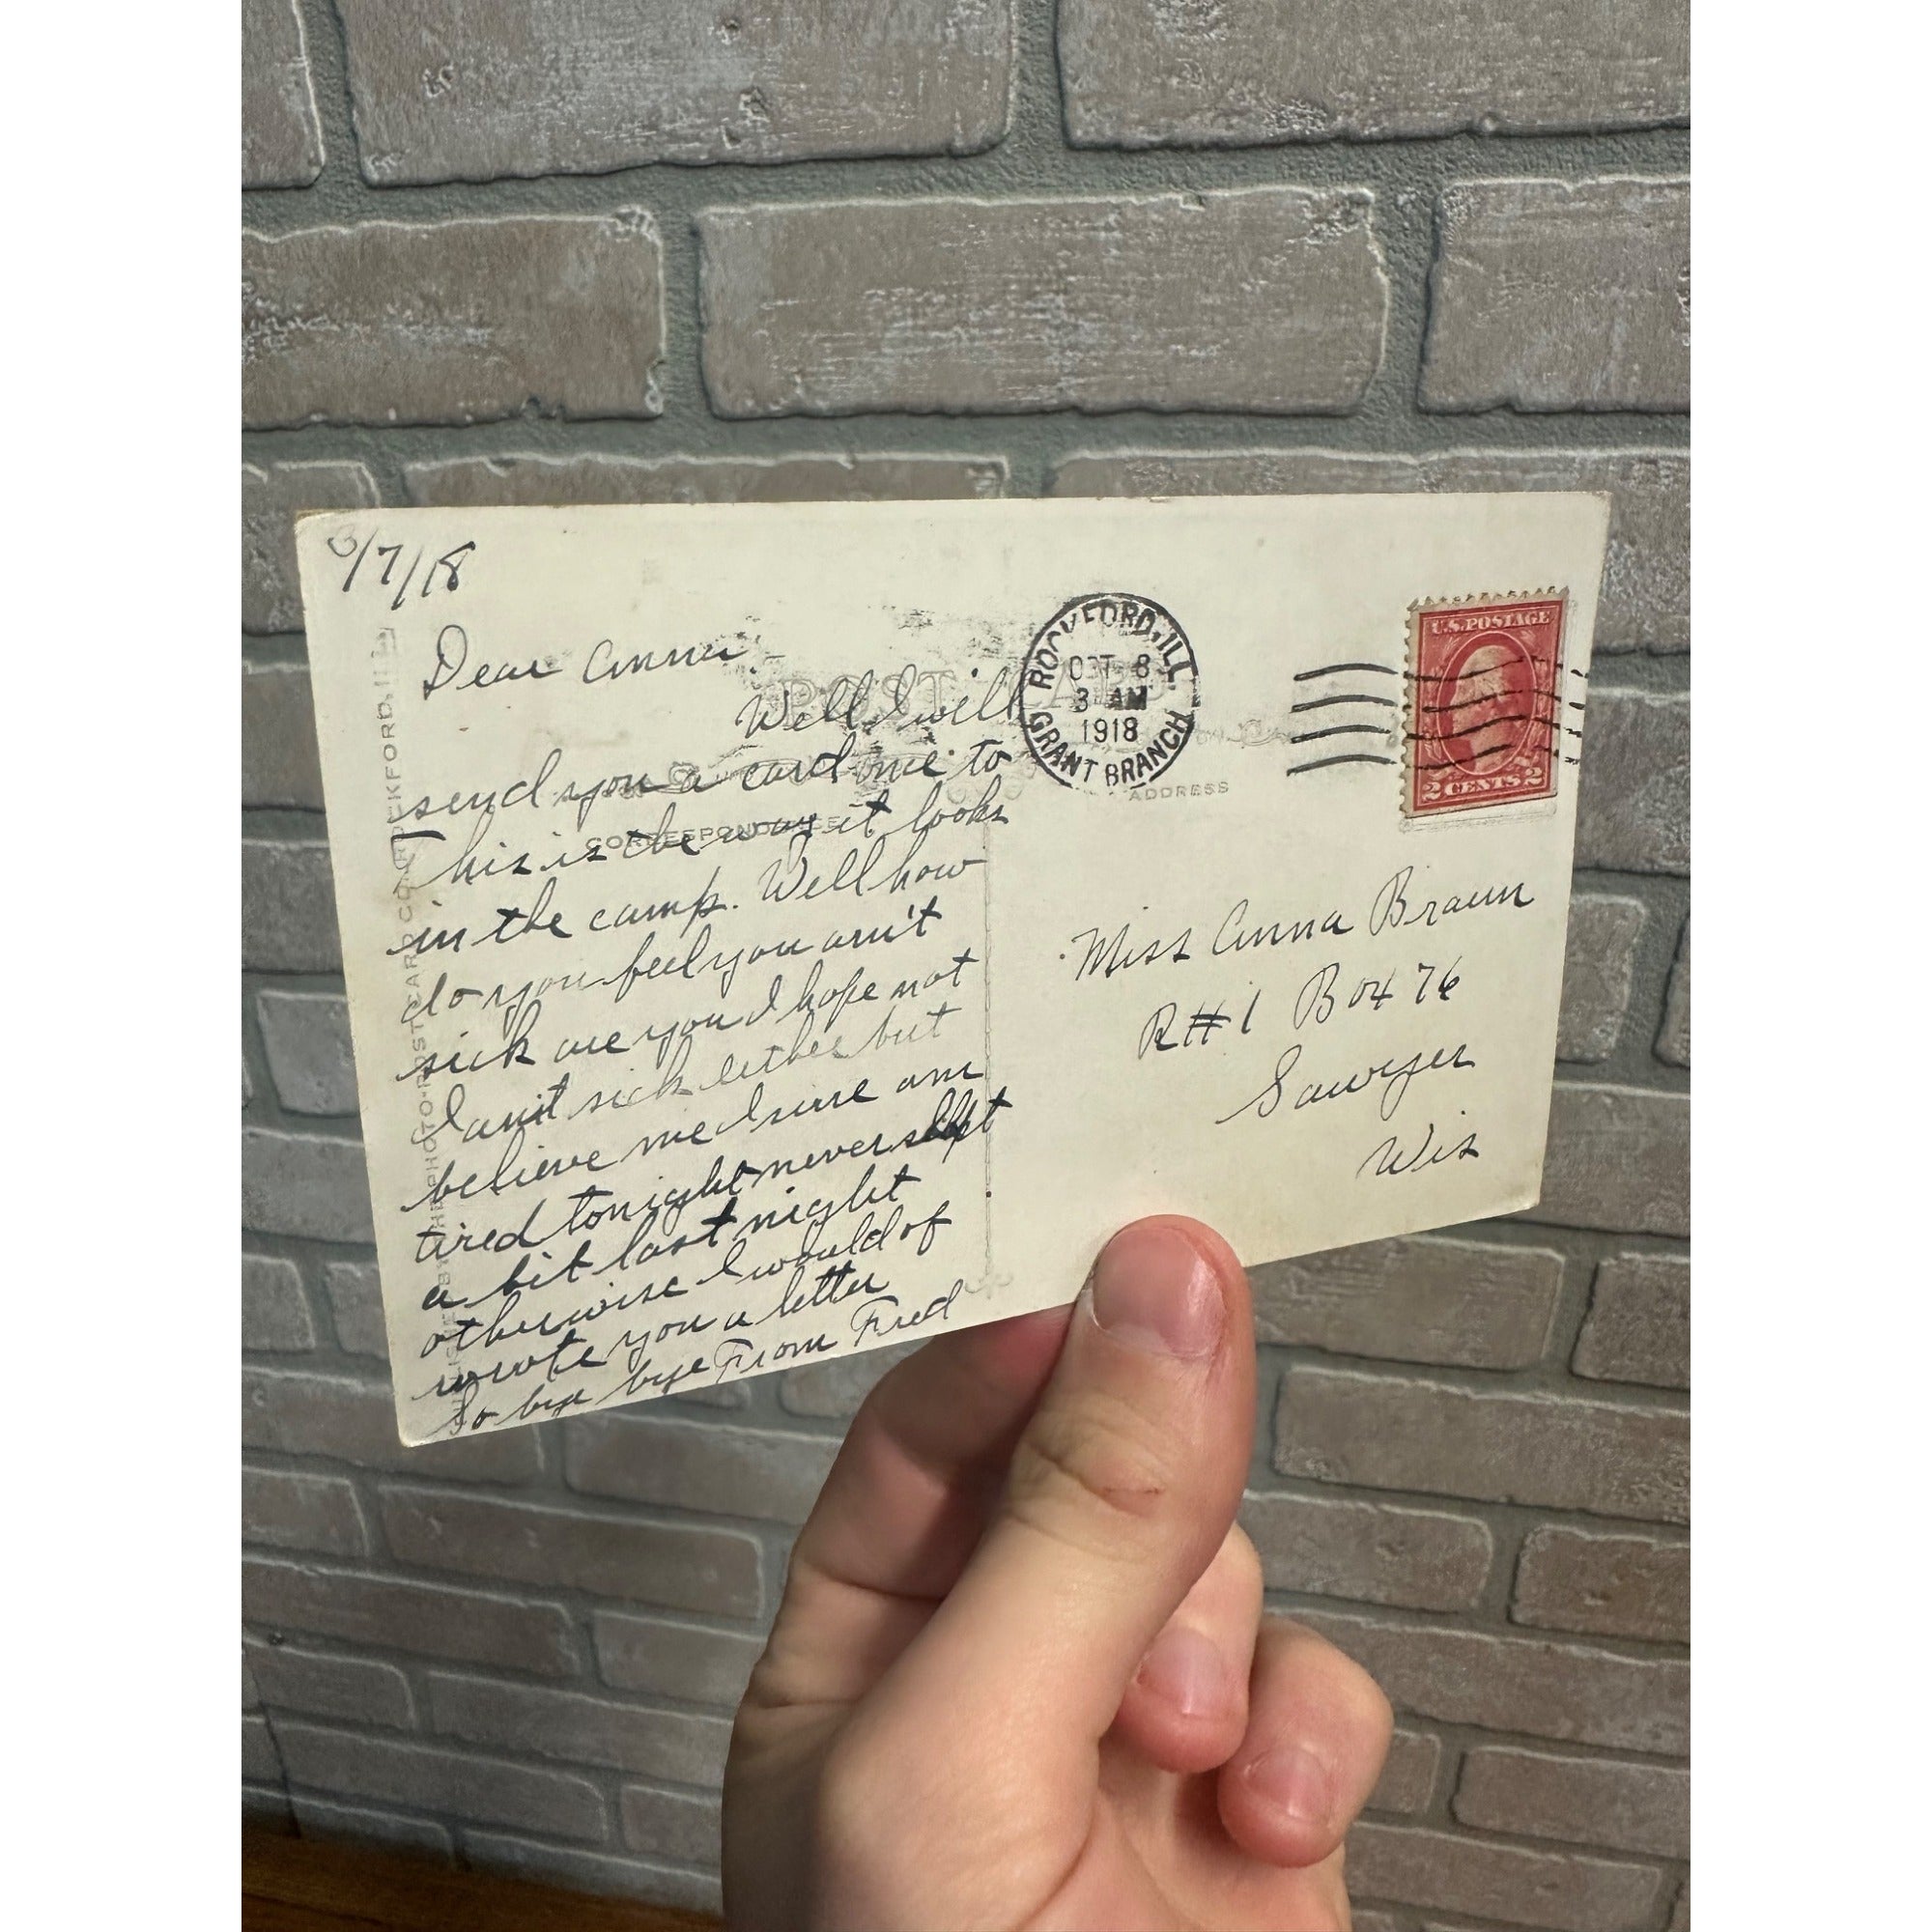 /7/18
Dear Anna -
Well I will
send you a card me to
This is the way it looks
in the camp. Well how
do you feel you ain't
sick are you I hope not
I ain't sick either but
believe me I sure am
tired tonight never slept
a bit last night
otherwise I would of
wrote you a letter
So bye bye From Fred
POST CARD
CORRESPONDENCE
ADDRESS
ROCKFORD, ILL.
OCT 8
3 AM
1918
GRANT BRANCH
U.S. POSTAGE
2 CENTS 2
Miss Anna Braun
R#1 Box 76
Sawyer
Wis
PHOTO POST CARD CO. ROCKFORD, ILL.